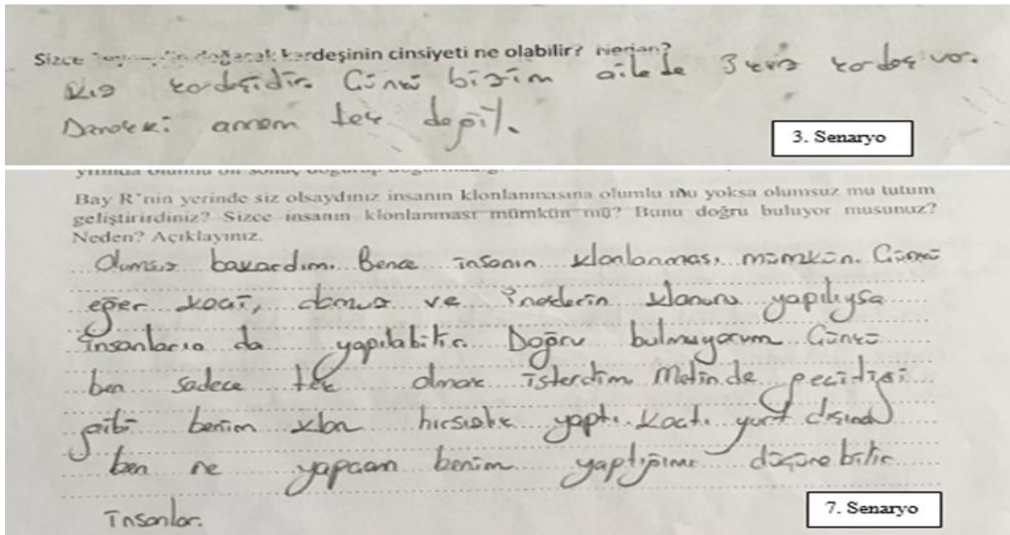 Sizce doğacak kardeşinin cinsiyeti ne olabilir? Neden?
Kız kardeşidir. Çünkü bizim ailede 3 kız kardeş var.
Demekki annem tek değil.
3. Senaryo
Bay R'nin yerinde siz olsaydınız insanın klonlanmasına olumlu mu yoksa olumsuz mu tutum
geliştirirdiniz? Sizce insanın klonlanması mümkün mü? Bunu doğru buluyor musunuz?
Neden? Açıklayınız.
Olumsuz bakardım. Bence insanın klonlanması mümkün. Çünkü
eğer keçi, domuz ve ineklerin klonunu yapılıysa
insanlarında yapılabilir. Doğru bulmuyorum Çünkü
ben sadece tek olmak isterdim. Metinde geçtiği
gibi benim klon hırsızlık yaptı. Kaçtı yurt dışında
ben ne yapcam benim yaptığımı düşünebilir
insanlar.
7. Senaryo